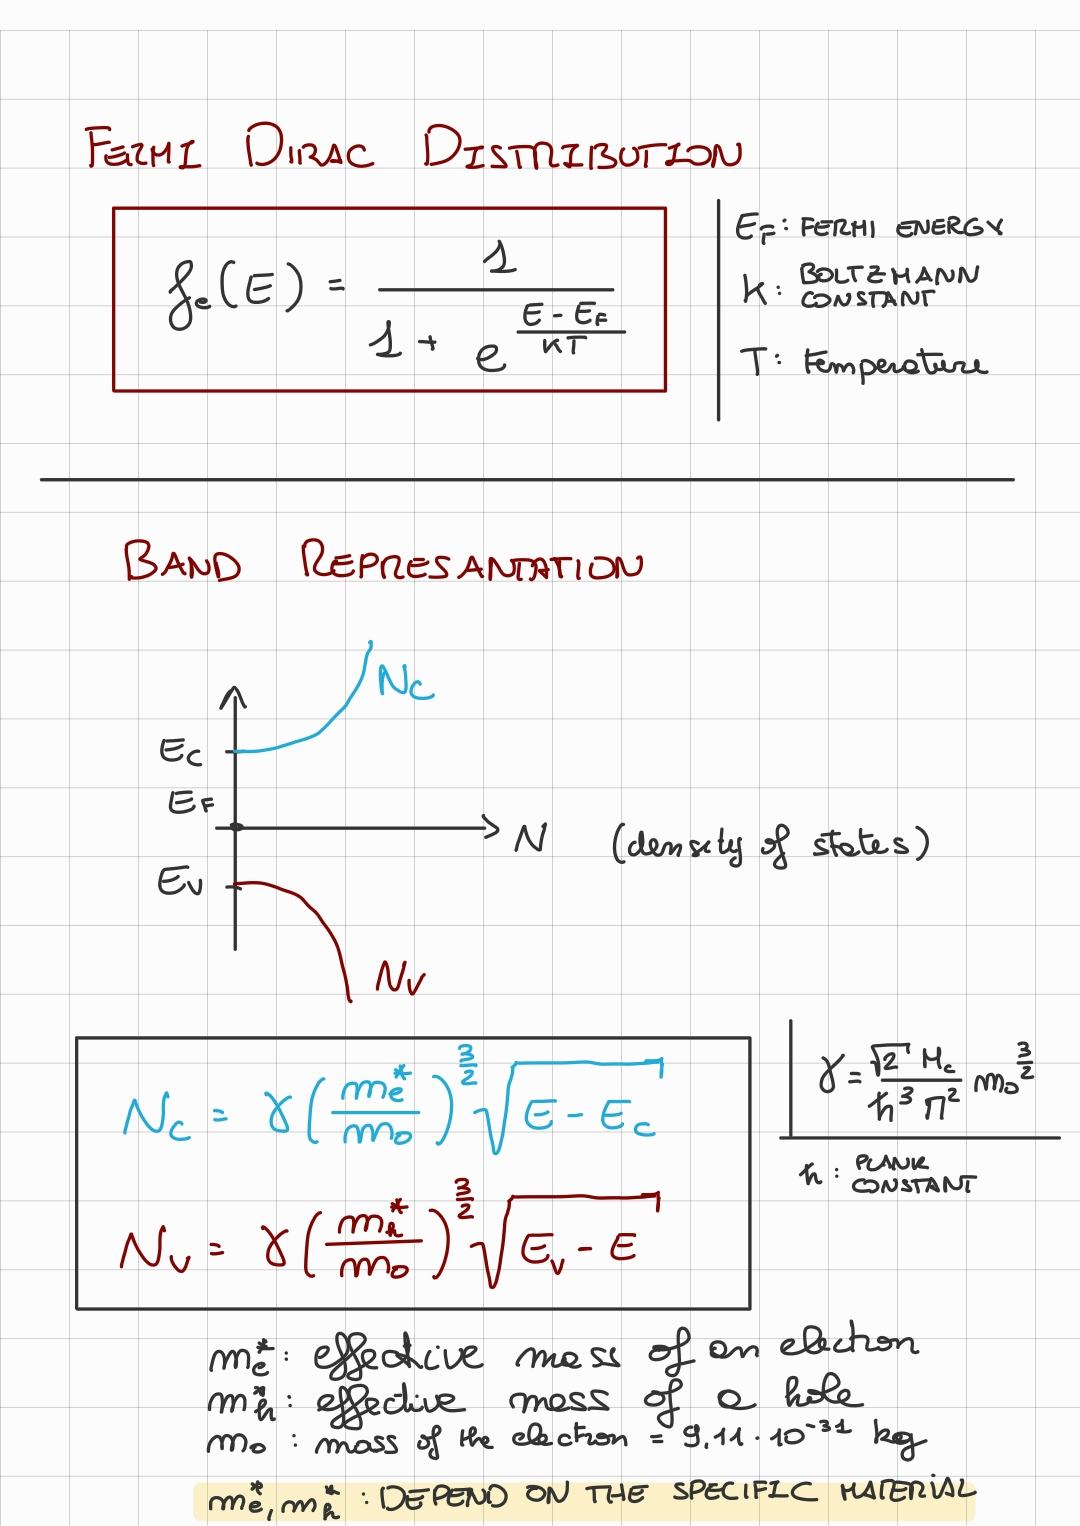 FERMI DIRAC DISTRIBUTION
fe(E) = 1 / (1 + e^((E - EF)/KT))
EF: FERMI ENERGY
K: BOLTZMANN CONSTANT
T: Temperature
BAND REPRESANTATION
NC
EC
EF
N (density of states)
EV
NV
NC = γ (me*/mo)^(3/2) √(E - EC)
NV = γ (mh*/mo)^(3/2) √(EV - E)
γ = (√2 Mc / (ħ³ π²)) mo^(3/2)
ħ: PLANK CONSTANT
me*: effective mass of an electron
mh*: effective mass of a hole
mo: mass of the electron = 9,11 · 10⁻³¹ kg
me*, mh*: DEPEND ON THE SPECIFIC MATERIAL